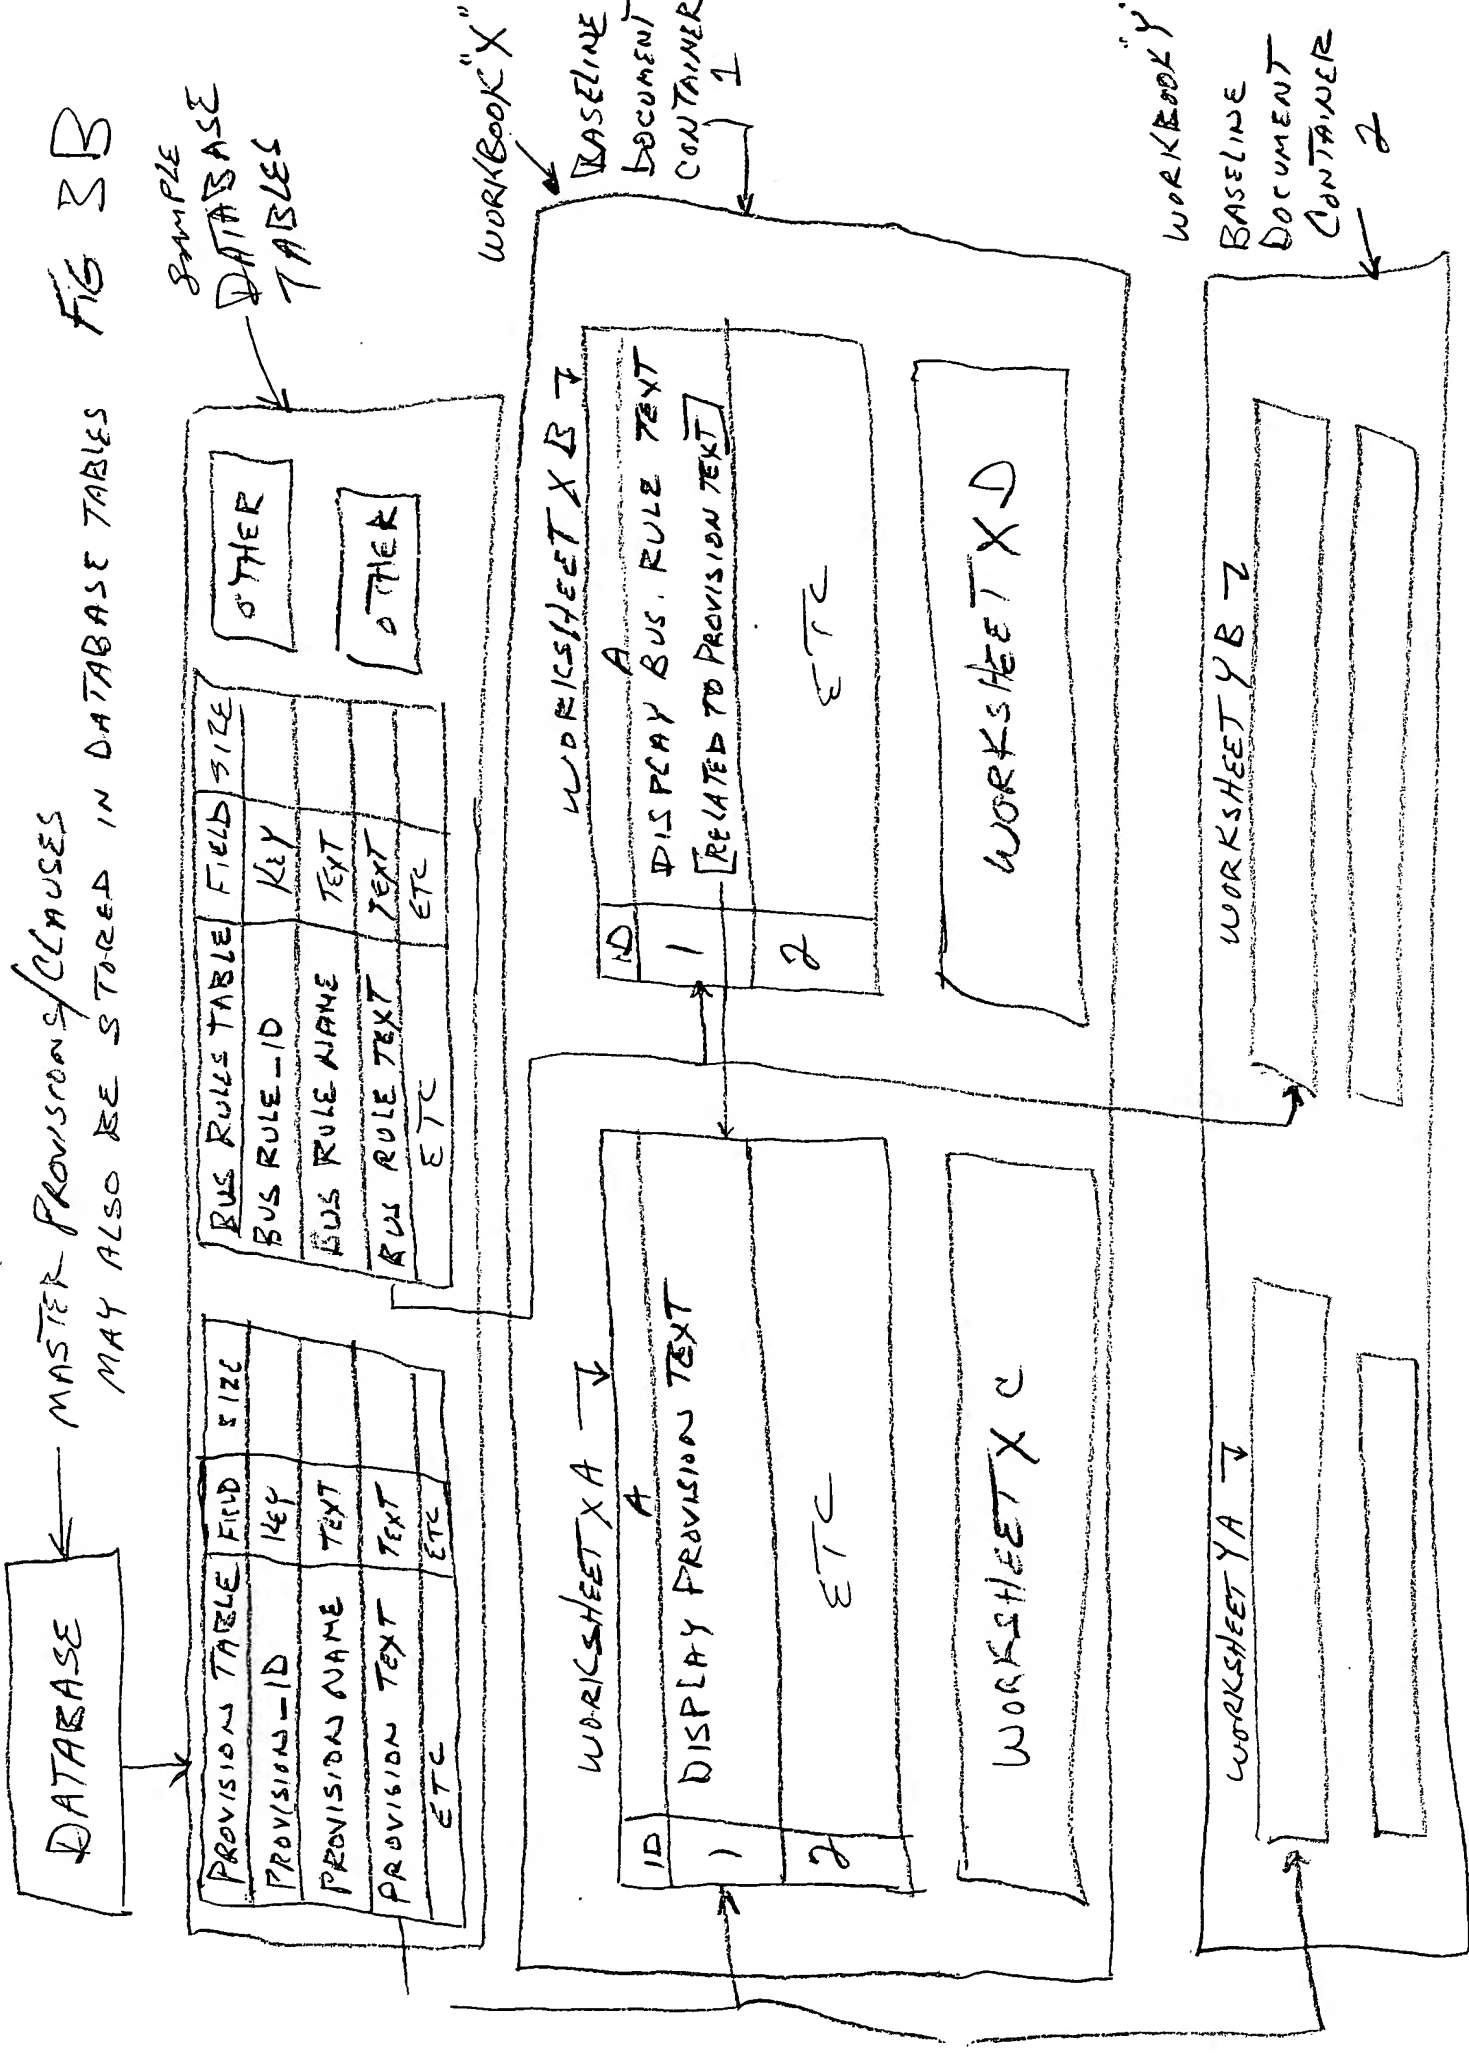 FIG 3B
DATABASE
MASTER PROVISIONS/CLAUSES
MAY ALSO BE STORED IN DATABASE TABLES
SAMPLE
DATABASE
TABLES
PROVISION TABLE FIELD SIZE
PROVISION_ID KEY
PROVISION NAME TEXT
PROVISION TEXT TEXT
ETC ETC
BUS RULES TABLE FIELD SIZE
BUS RULE_ID KEY
BUS RULE NAME TEXT
BUS RULE TEXT TEXT
ETC ETC
OTHER
OTHER
WORKBOOK "X"
BASELINE
DOCUMENT
CONTAINER
1
WORKSHEET XA
ID A
1 DISPLAY PROVISION TEXT
2 ETC
WORKSHEET XB
ID A
1 DISPLAY BUS. RULE TEXT
[RELATED TO PROVISION TEXT]
2 ETC
WORKSHEET XC
WORKSHEET XD
WORKBOOK "Y"
BASELINE
DOCUMENT
CONTAINER
2
WORKSHEET YA
WORKSHEET YB